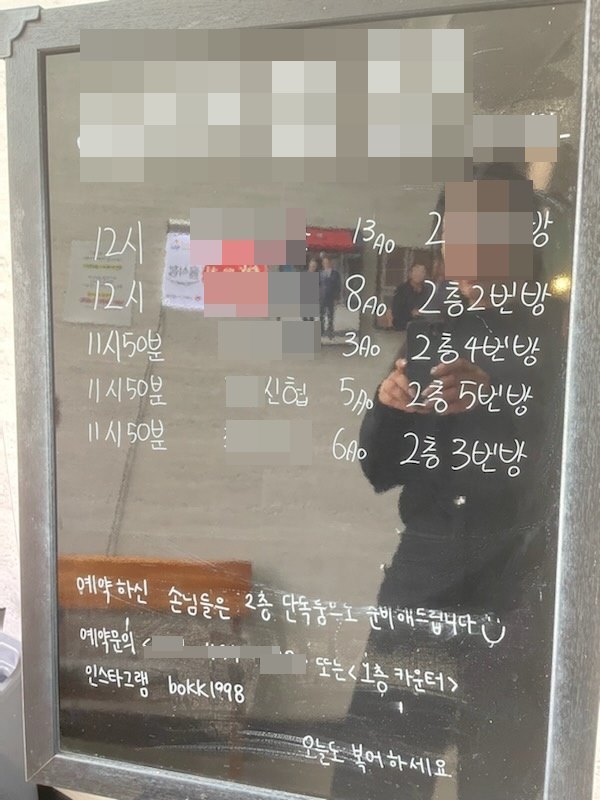 12시 13人 2 방
12시 8人 2층2번방
11시50분 3人 2층4번방
11시50분 신협 5人 2층 5번방
11시50분 6人 2층 3번방
예약하신 손님들은 2층 단독룸으로 준비해드립니다
예약문의 < 또는<1층 카운터>
인스타그램 bokk1998
오늘도 복어하세요